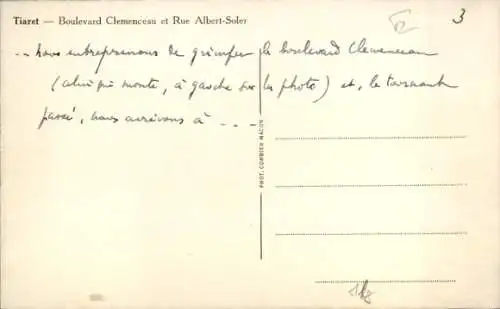 Tiaret — Boulevard Clemenceau et Rue Albert-Soler
3
-- nous entreprenons de grimper le boulevard Clemenceau
(celui qui monte, à gauche sur la photo) et, le tournant
passé, nous arrivons à - - - -
PHOT. COMBIER MACON